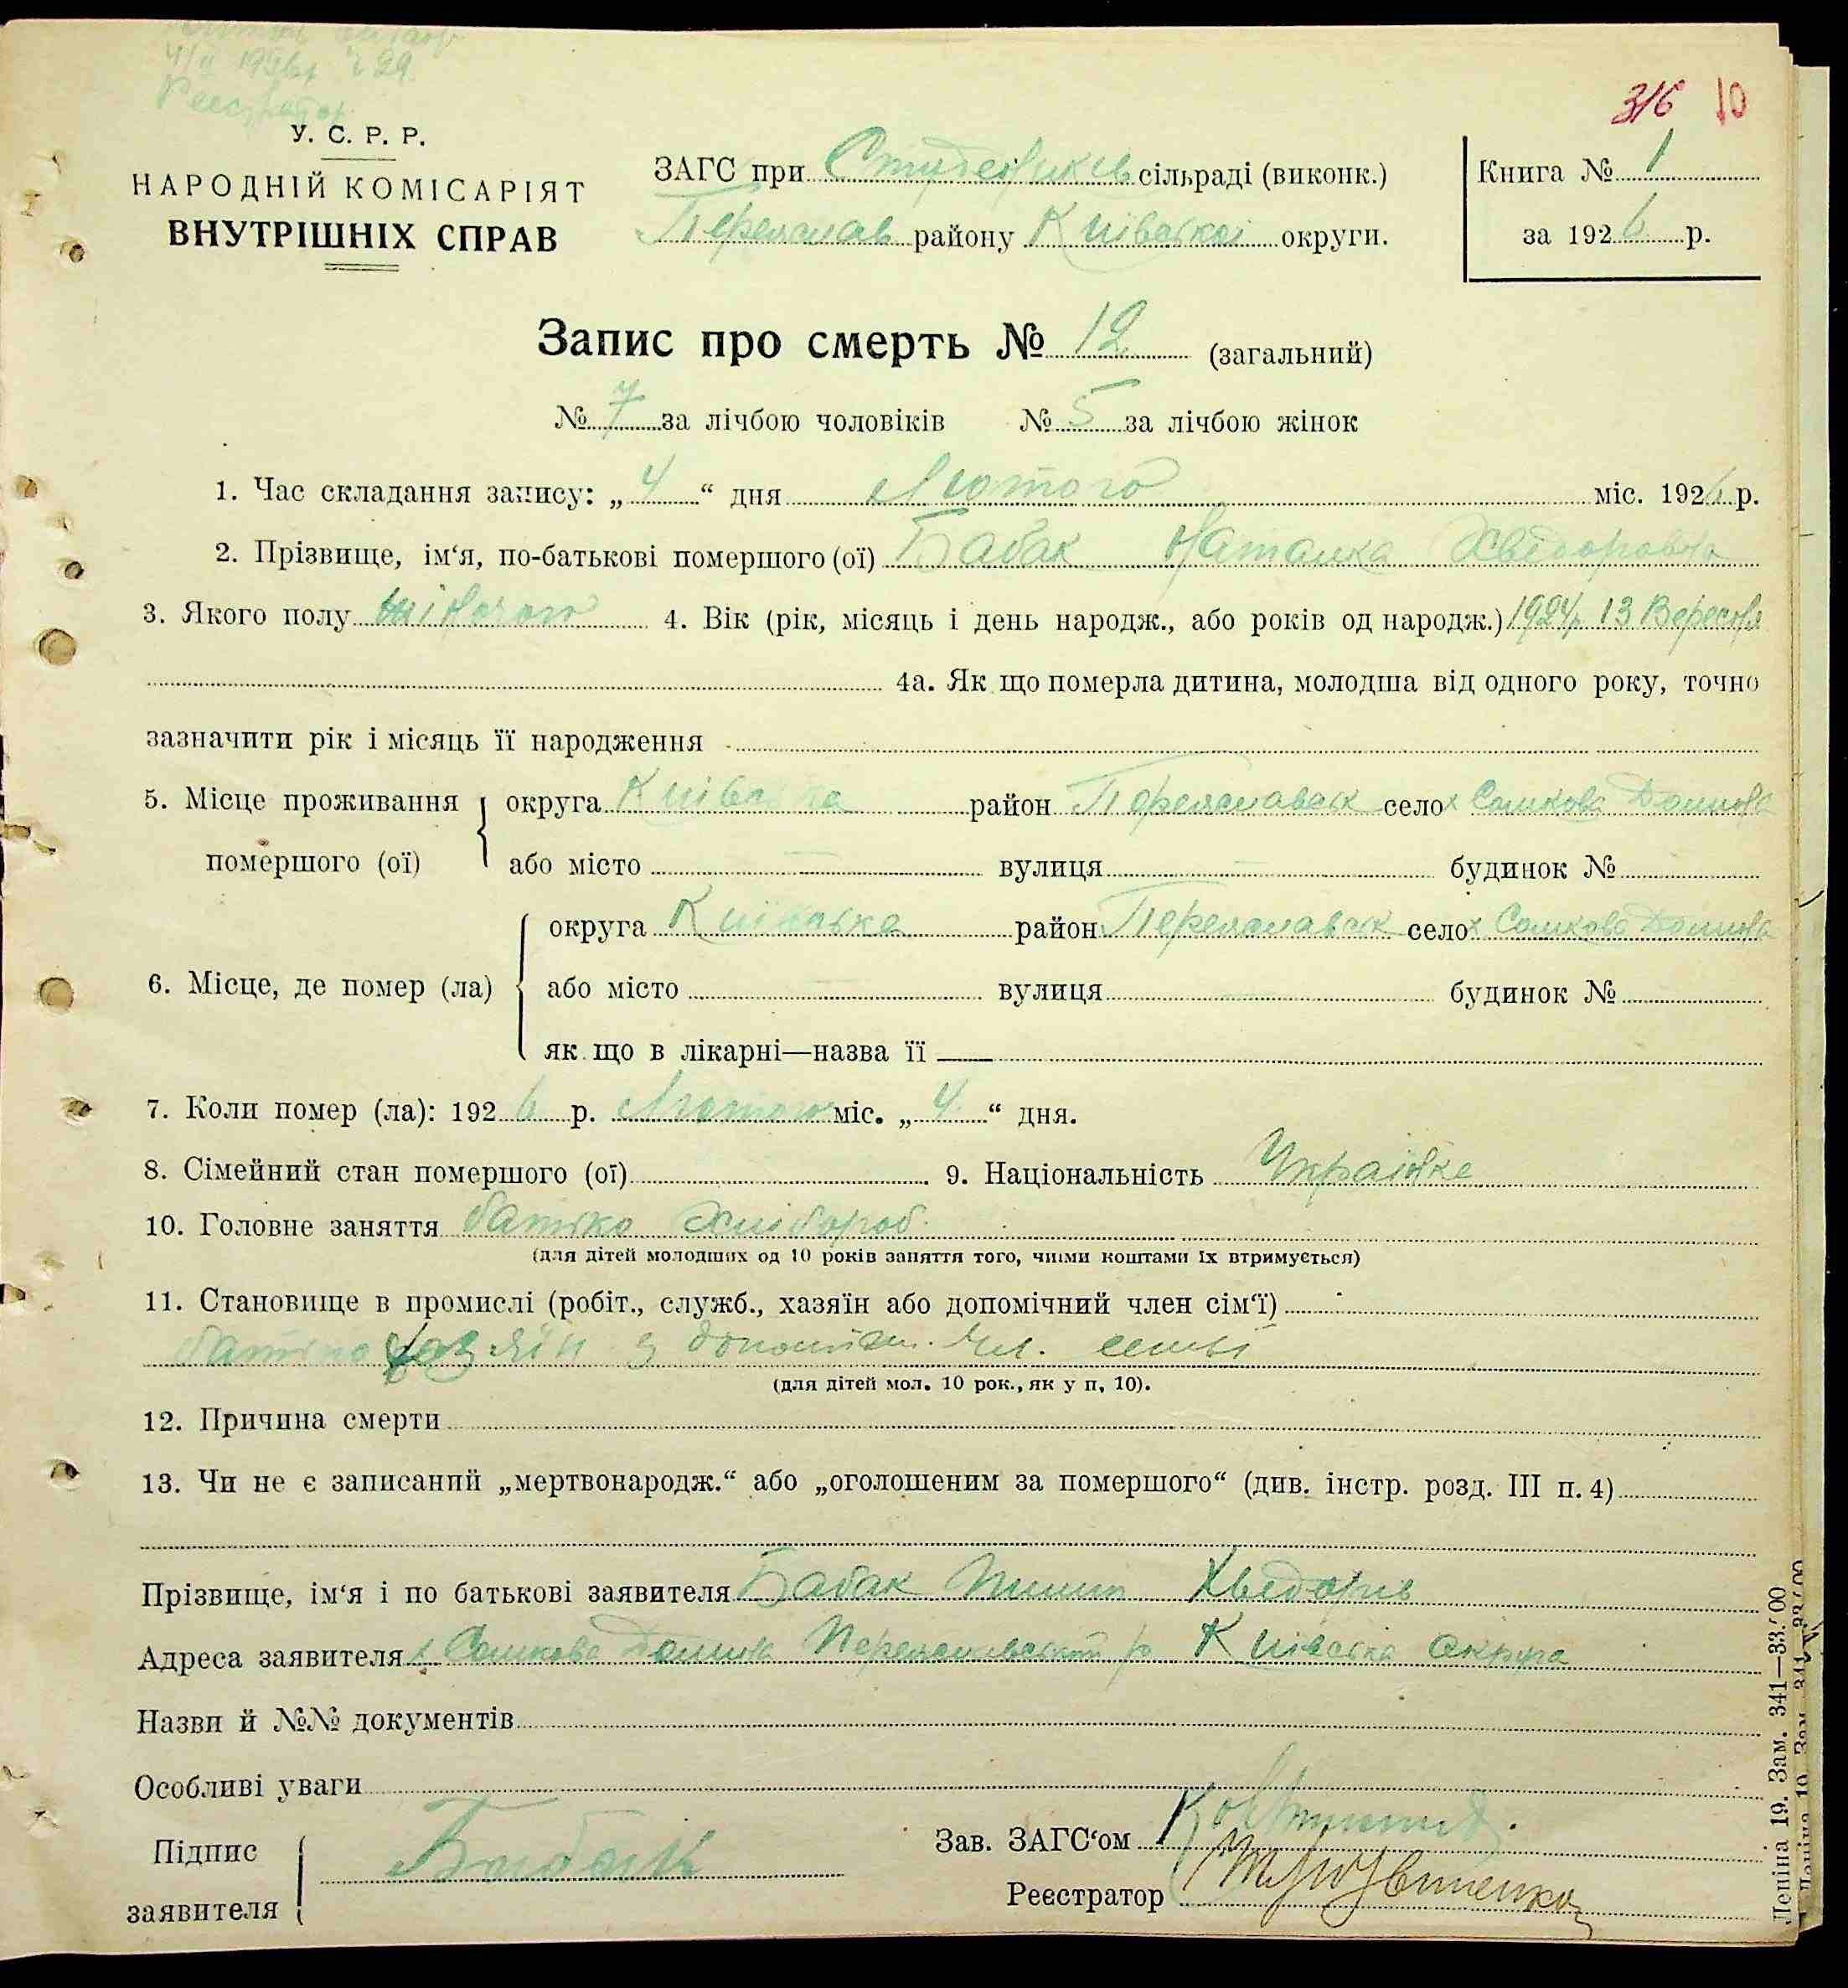 4/II 1926р № 29.
Реєстратор
316 10
У. С. Р. Р.
НАРОДНІЙ КОМІСАРІЯТ
ВНУТРІШНІХ СПРАВ
ЗАГС при Студеників сільраді (виконк.)
Переяслав району Київської округи.
Книга № 1
за 1926 р.
Запис про смерть № 12 (загальний)
№ 7 за лічбою чоловіків № 5 за лічбою жінок
1. Час складання запису: „4“ дня Лютого міс. 1926 р.
2. Прізвище, ім‘я, по-батькові помершого (ої) Бабак Наталка Хведоровна
3. Якого полу жіночого 4. Вік (рік, місяць і день народж., або років од народж.) 1924р 13 Вересня
4а. Як що померла дитина, молодша від одного року, точно
зазначити рік і місяць її народження
5. Місце проживання помершого (ої) округа Київська район Переяславськ село х Сомкова Долина
або місто — вулиця — будинок №
6. Місце, де помер (ла) округа Київська район Переяславськ село х Сомкова Долина
або місто вулиця будинок №
як що в лікарні—назва її
7. Коли помер (ла): 1926 р. Лютого міс. „4“ дня.
8. Сімейний стан помершого (ої) 9. Національність Українке
10. Головне заняття батько хлібороб.
(для дітей молодших од 10 років заняття того, чиїми коштами їх втримується)
11. Становище в промислі (робіт., служб., хазяїн або допомічний член сім‘ї)
батько хазяїн з допоміч. чл. семьї
(для дітей мол. 10 рок., як у п. 10).
12. Причина смерти
13. Чи не є записаний „мертвонародж.“ або „оголошеним за помершого“ (див. інстр. розд. III п. 4)
Прізвище, ім‘я і по батькові заявителя Бабак Хведорів
Адреса заявителя х. Сомкова Долина Переяславський р. Київська округа
Назви й №№ документів
Особливі уваги
Підпис заявителя Бабак
Зав. ЗАГС‘ом
Реєстратор
Леніна 19. Зам. 341—33.000